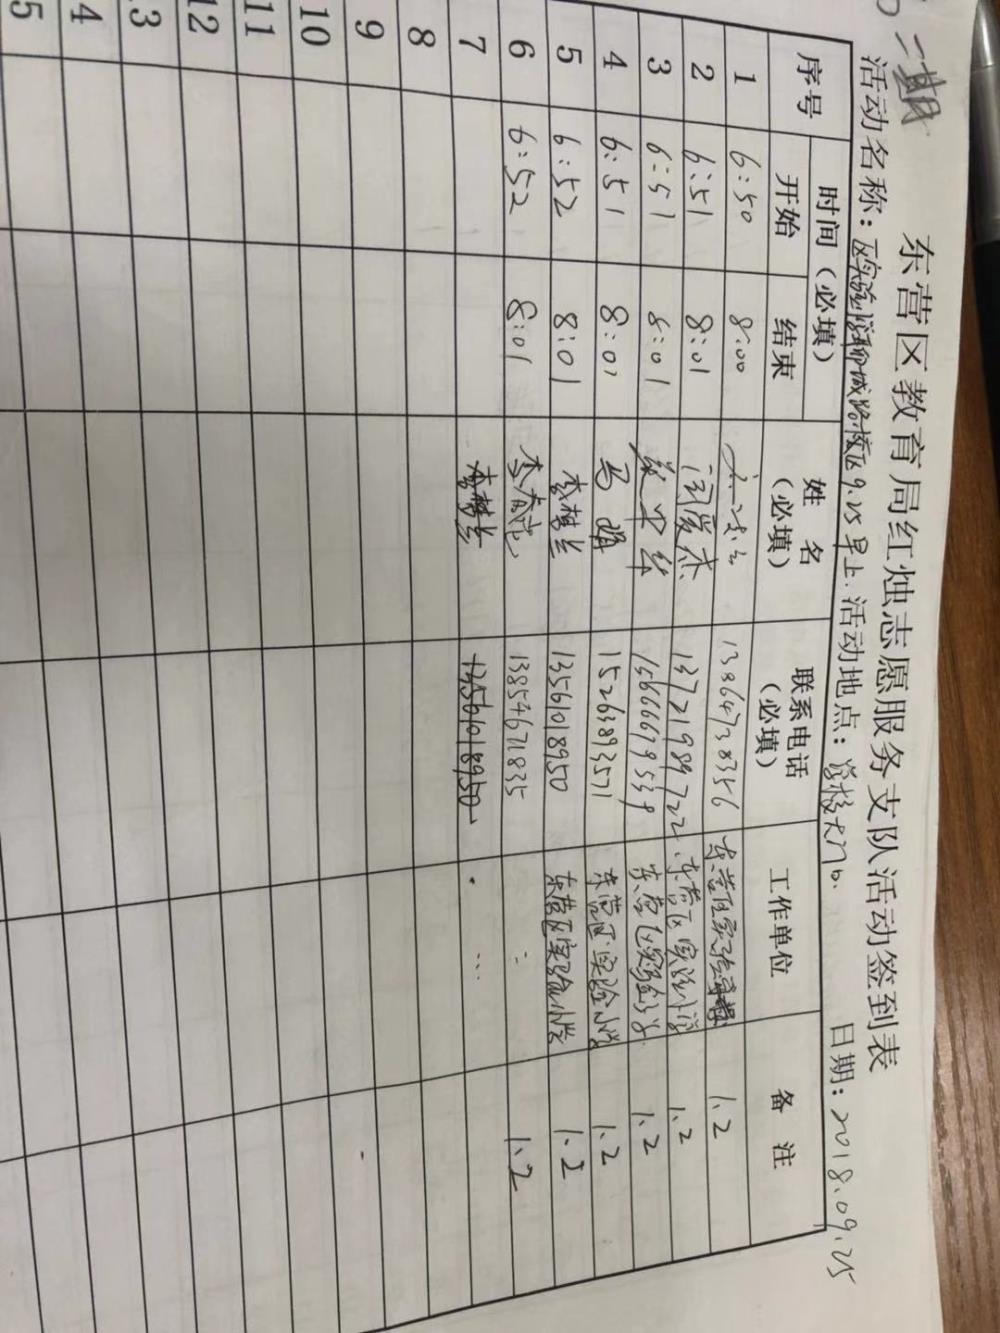 二期
东营区教育局红烛志愿服务支队活动签到表
活动名称：区实验学校聊城路校区9.25早上. 活动地点：学校大门口. 日期：2018.09.25
序号 时间（必填） 姓 名（必填） 联系电话（必填） 工作单位 备 注
开始 结束
1 6:50 8:00 13864738356 东营区实验 1.2
2 6:51 8:01 闫爱杰 13721989722 东营区实验小学 1.2
3 6:51 8:01 15666679539 东营区实验小学. 1.2
4 6:51 8:01 马娟 15263893571 东营区实验小学 1.2
5 6:52 8:01 李棋兰 13561018950 东营区实验小学 1.2
6 6:52 8:01 李春 13854671835 : 1.2
7 李棋兰 13561018950 ...
8
9
10
11
12
13
4
5